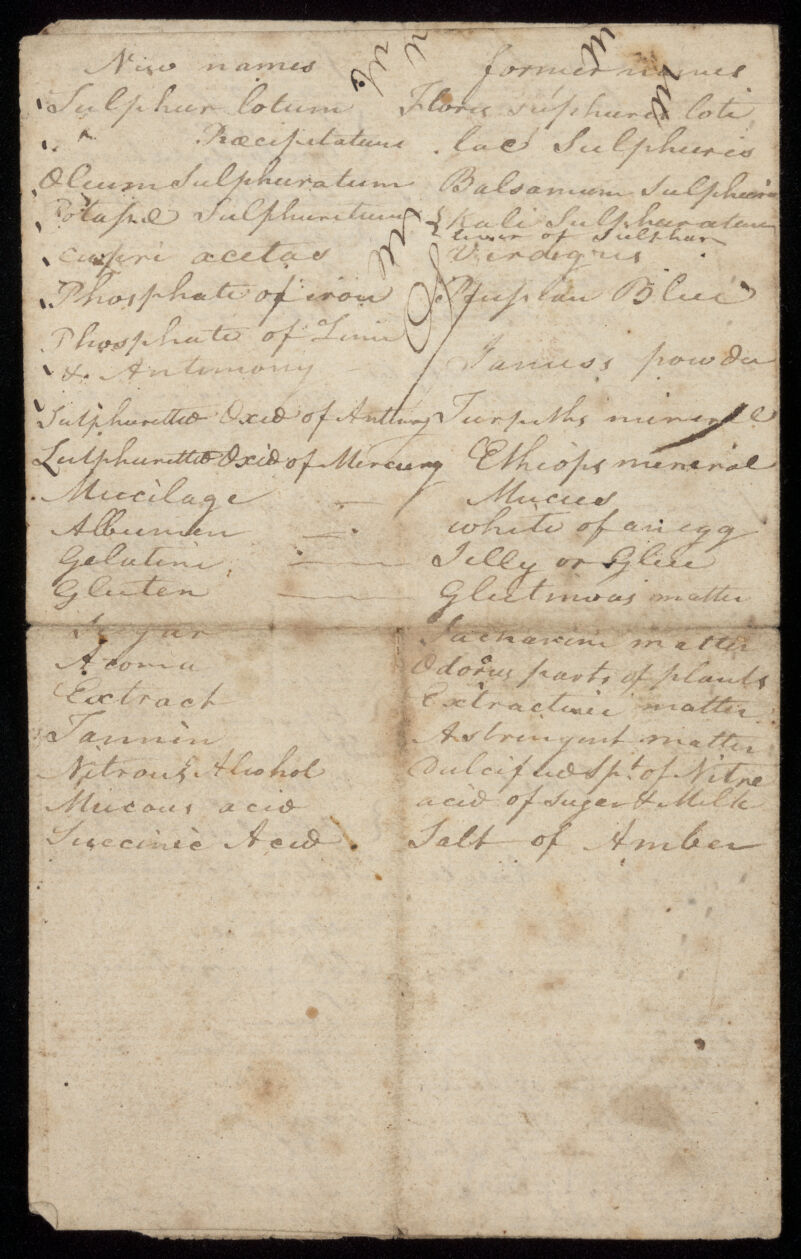 New names former names
Sulphur lotum Flores sulphuris loti
" Præcipitatum lac Sulphuris
Oleum Sulphuratum Balsamum Sulphuris
Potassæ Sulphuretum { Kali Sulphuratum
liver of Sulphur
cupri acetas Verdigris
Phosphate of iron Prussian Blue
Phosphate of Lime
& Antimony - James's powder
Sulphuretted Oxid of Antimy Turpeths mineral
Sulphuretted Oxid of Mercury Ethiops mineral
Mucilage — Mucus
Albumen — white of an egg
Gelatine — Jelly or Glue
Gluten — Glutinous matter
Sugar Sacharine matter
Aroma Odorus parts of plants
Extract Extractive matter
Tannin Astringent matter
Nitrous Alcohol Dulcified Spt. of Nitre
Mucous acid acid of Sugar & Milk
Succinic Acid Salt of Amber